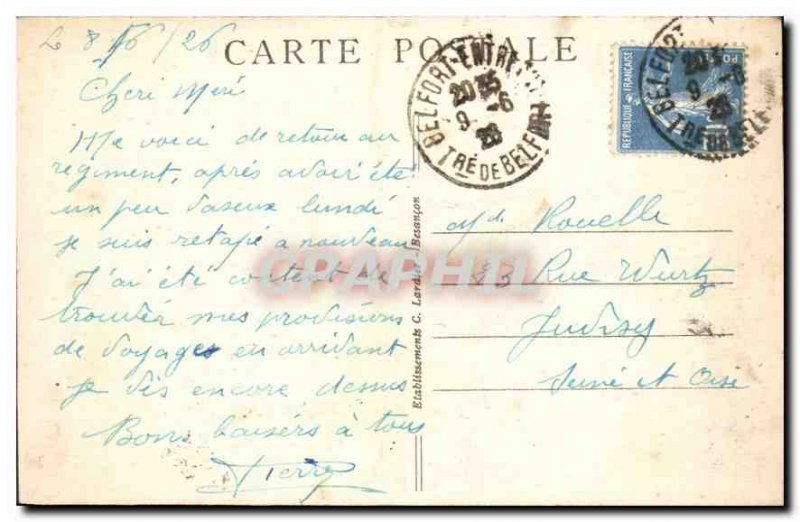 Le 8/6/26
CARTE POSTALE
Cheri Meré
Me voici de retour au
regiment, après avoir été
un peu vaseux lundi
je suis retapé a nouveau
J'ai été content de
trouver mes provisions
de voyages en arrivant
je vis encore dessus
Bons baisers à tous
Pierre
Etablissements C. Lardier - Besançon
BELFORT-ENTREPOT
20 35
9 - 6
26
TRE DE BELFORT
REPUBLIQUE FRANÇAISE
POSTES
BELFORT
20 35
9 - 6
26
TRE DE BELFORT
Md Rouelle
23 Rue Wurtz
Juvisy
Seine et Oise
CPAPHIL